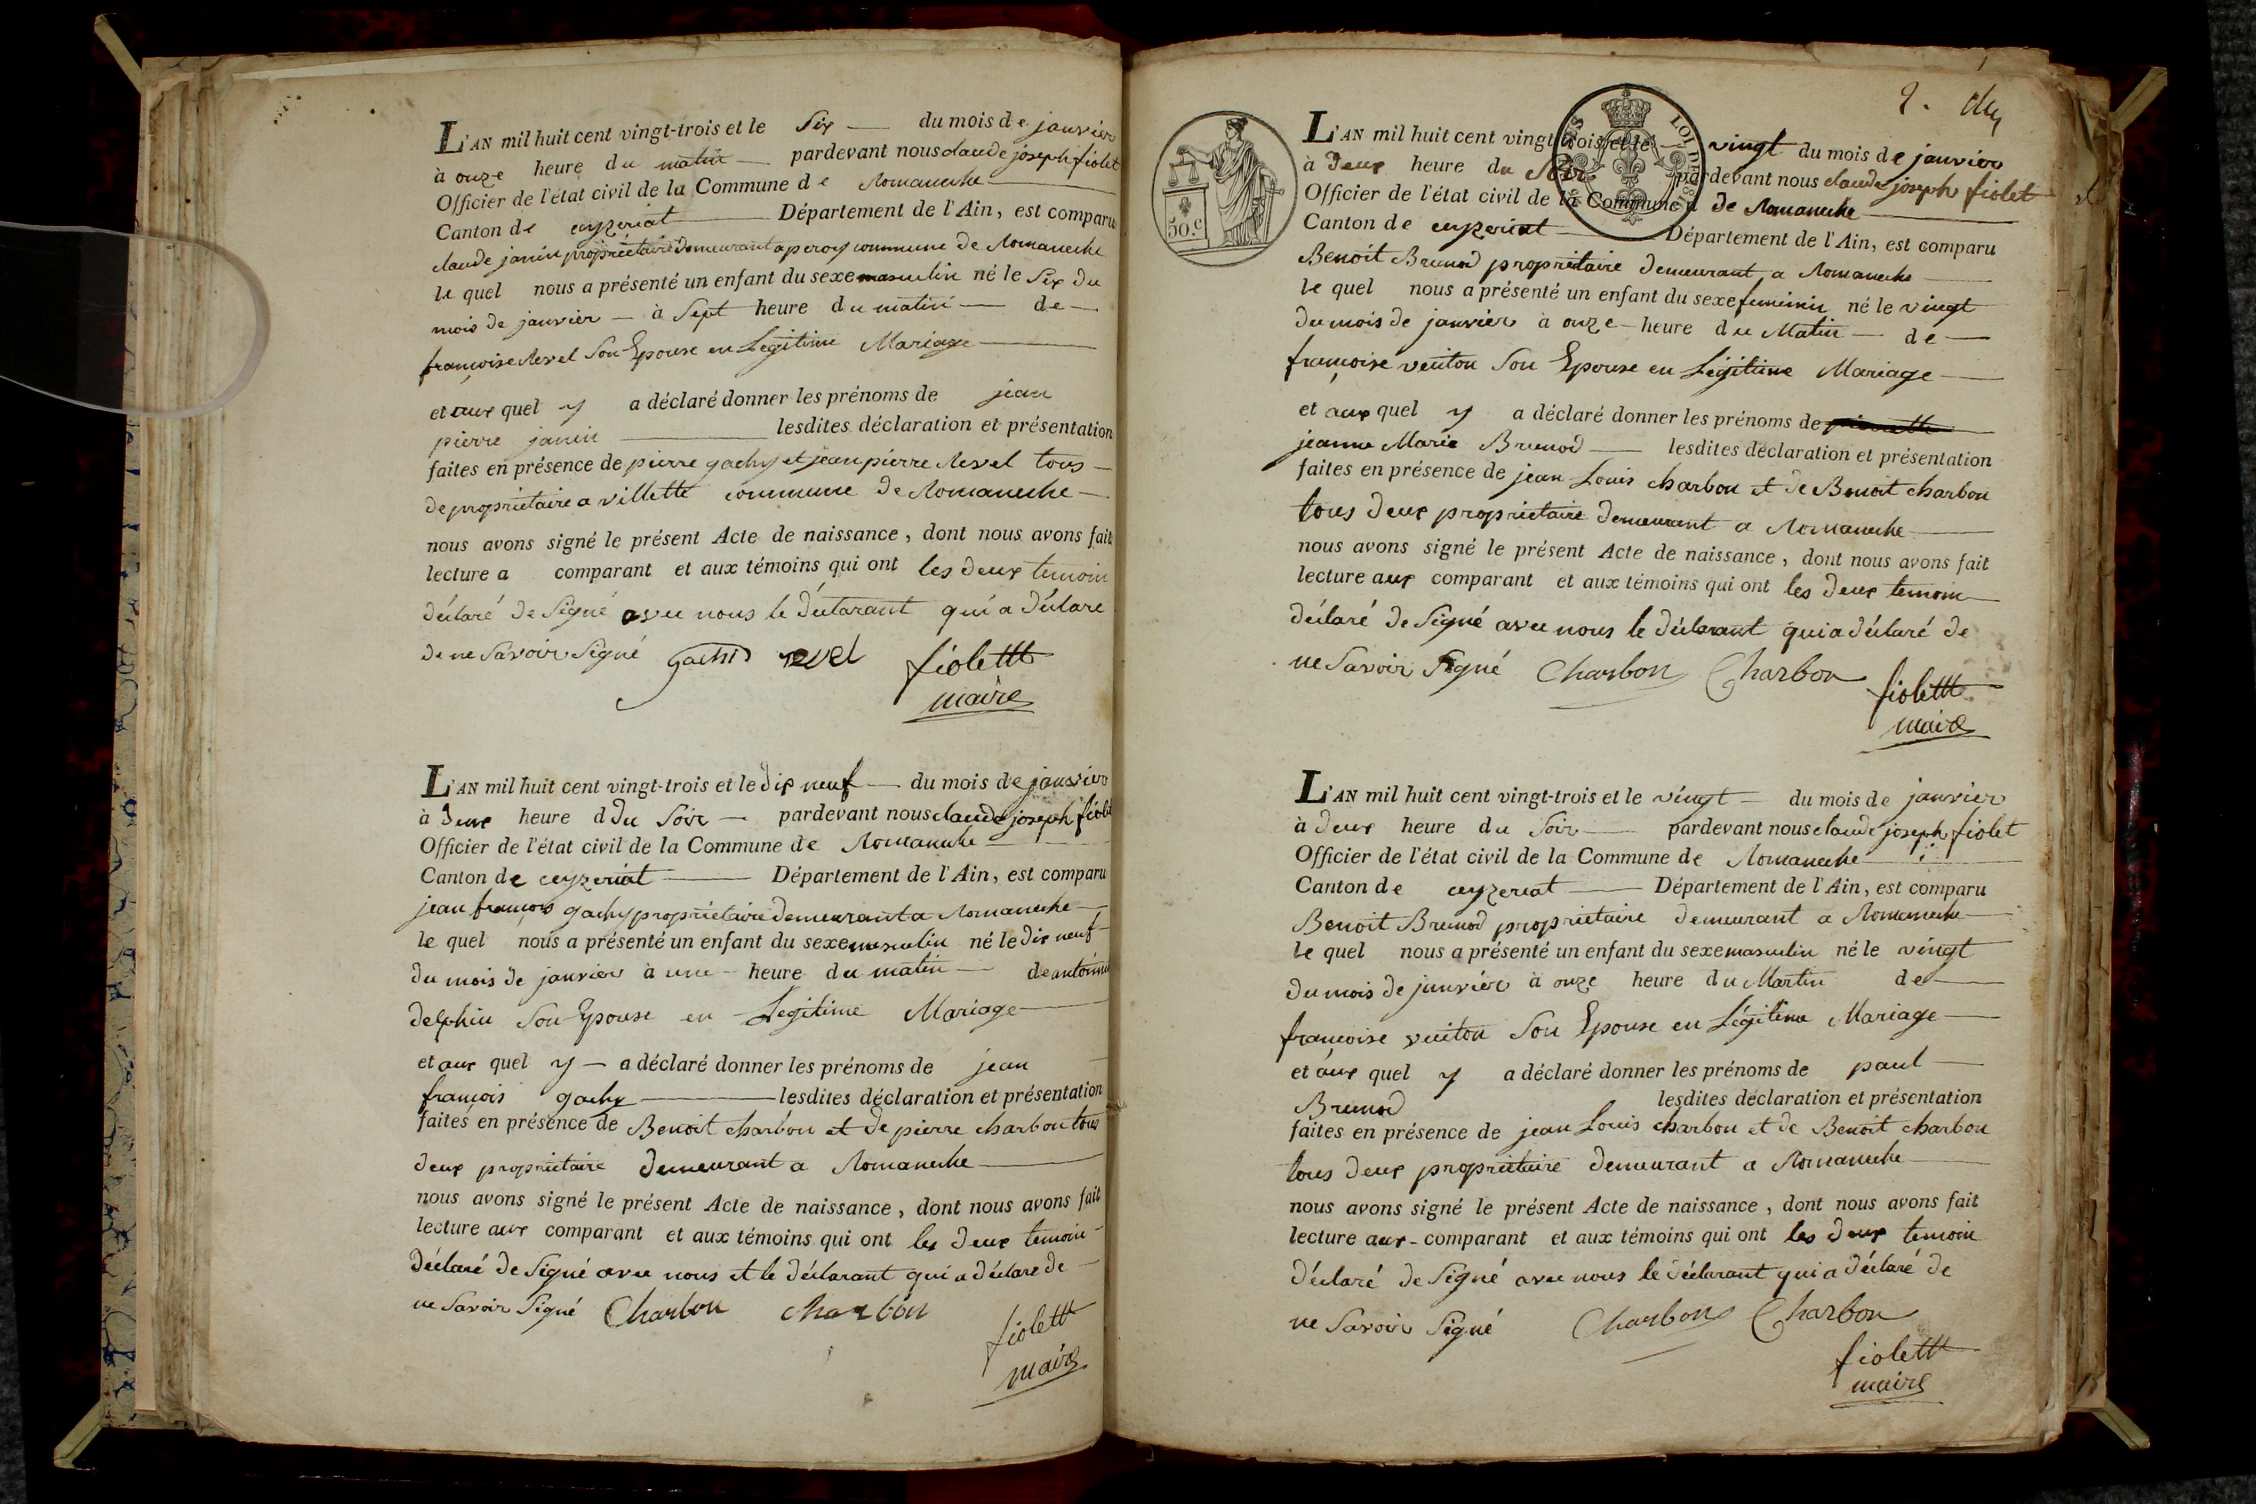 L'AN mil huit cent vingt-trois et le Six du mois de janvier
à onze heure du matin pardevant nous claude joseph fiolet
Officier de l'état civil de la Commune de Romaneche
Canton de ceyzeriat Département de l'Ain, est comparu
claude janin propriétaire demeurant a peroy commune de Romaneche
le quel nous a présenté un enfant du sexe masculin né le Six du
mois de janvier à Sept heure du matin de
françoise Revel Son Epouse en Legitime Mariage
et aux quel y a déclaré donner les prénoms de jean
pierre janin lesdites déclaration et présentation
faites en présence de pierre gachy et jean pierre Revel tous
de propriétaire a villette commune de Romaneche
nous avons signé le présent Acte de naissance, dont nous avons fait
lecture a comparant et aux témoins qui ont les deux temoin
déclaré de Signé avec nous le déclarant qui a déclare
de ne Savoir Signé gachi revel fiolettt
maire
L'AN mil huit cent vingt-trois et le dix neuf du mois de janvier
à deux heure d du Soir pardevant nous claude joseph fiolet
Officier de l'état civil de la Commune de Romaneche
Canton de ceyzeriat Département de l'Ain, est comparu
jean françois gachy propriétaire demeurant a Romaneche
le quel nous a présenté un enfant du sexe masculin né le dix neuf
du mois de janvier à une heure du matin de antoinne
delphin Son Epouse en Legitime Mariage
et aux quel y a déclaré donner les prénoms de jean
françois gachy lesdites déclaration et présentation
faites en présence de Benoit charbon et de pierre charbon tous
deux propriétaire demeurant a Romaneche
nous avons signé le présent Acte de naissance, dont nous avons fait
lecture aux comparant et aux témoins qui ont les deux temoin
déclaré de Signé avec nous et le déclarant qui a déclare de
ne Savoir Signé Charbon charbon fiolettt
maire
2.
50.c
L'AN mil huit cent vingt-trois et le vingt du mois de janvier
à deux heure du Soir pardevant nous claude joseph fiolet
Officier de l'état civil de la Commune de Romaneche
Canton de ceyzeriat Département de l'Ain, est comparu
Benoit Brunod propriétaire demeurant a Romaneche
le quel nous a présenté un enfant du sexe feminin né le vingt
du mois de janvier à onze heure du Matin de
françoise vuiton Son Epouse en Légitime Mariage
et aux quel y a déclaré donner les prénoms de
jeanne Marie Brunod lesdites déclaration et présentation
faites en présence de jean Louis charbon et de Benoit charbon
tous deux propriétaire demeurant a Romaneche
nous avons signé le présent Acte de naissance, dont nous avons fait
lecture aux comparant et aux témoins qui ont les deux temoin
déclaré de Signé avec nous le déclarant qui a déclaré de
ne Savoir Signé Charbon Charbon fiolettt
maire
L'AN mil huit cent vingt-trois et le vingt du mois de janvier
à deux heure du Soir pardevant nous claude joseph fiolet
Officier de l'état civil de la Commune de Romaneche
Canton de ceyzeriat Département de l'Ain, est comparu
Benoit Brunod propriétaire demeurant a Romaneche
le quel nous a présenté un enfant du sexe masculin né le vingt
du mois de janvier à onze heure du Martin de
françoise vuiton Son Epouse en Légitime Mariage
et aux quel y a déclaré donner les prénoms de paul
Brunod lesdites déclaration et présentation
faites en présence de jean Louis charbon et de Benoit charbon
tous deux propriétaire demeurant a Romaneche
nous avons signé le présent Acte de naissance, dont nous avons fait
lecture aux comparant et aux témoins qui ont les deux temoin
déclaré de Signé avec nous le déclarant qui a déclaré de
ne Savoir Signé Charbon Charbon
fiolettt
maire